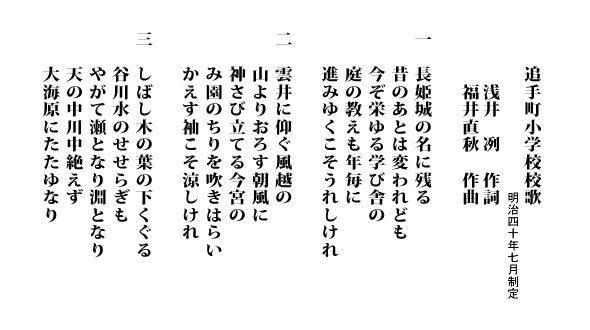 追手町小学校校歌
明治四十年七月制定
浅井 冽 作詞
福井直秋 作曲
一
長姫城の名に残る
昔のあとは変われども
今ぞ栄ゆる学び舎の
庭の教えも年毎に
進みゆくこそうれしけれ
二
雲井に仰ぐ風越の
山よりおろす朝風に
神さび立てる今宮の
み園のちりを吹きはらい
かえす袖こそ涼しけれ
三
しばし木の葉の下くぐる
谷川水のせせらぎも
やがて瀬となり淵となり
天の中川中絶えず
大海原にたたゆなり